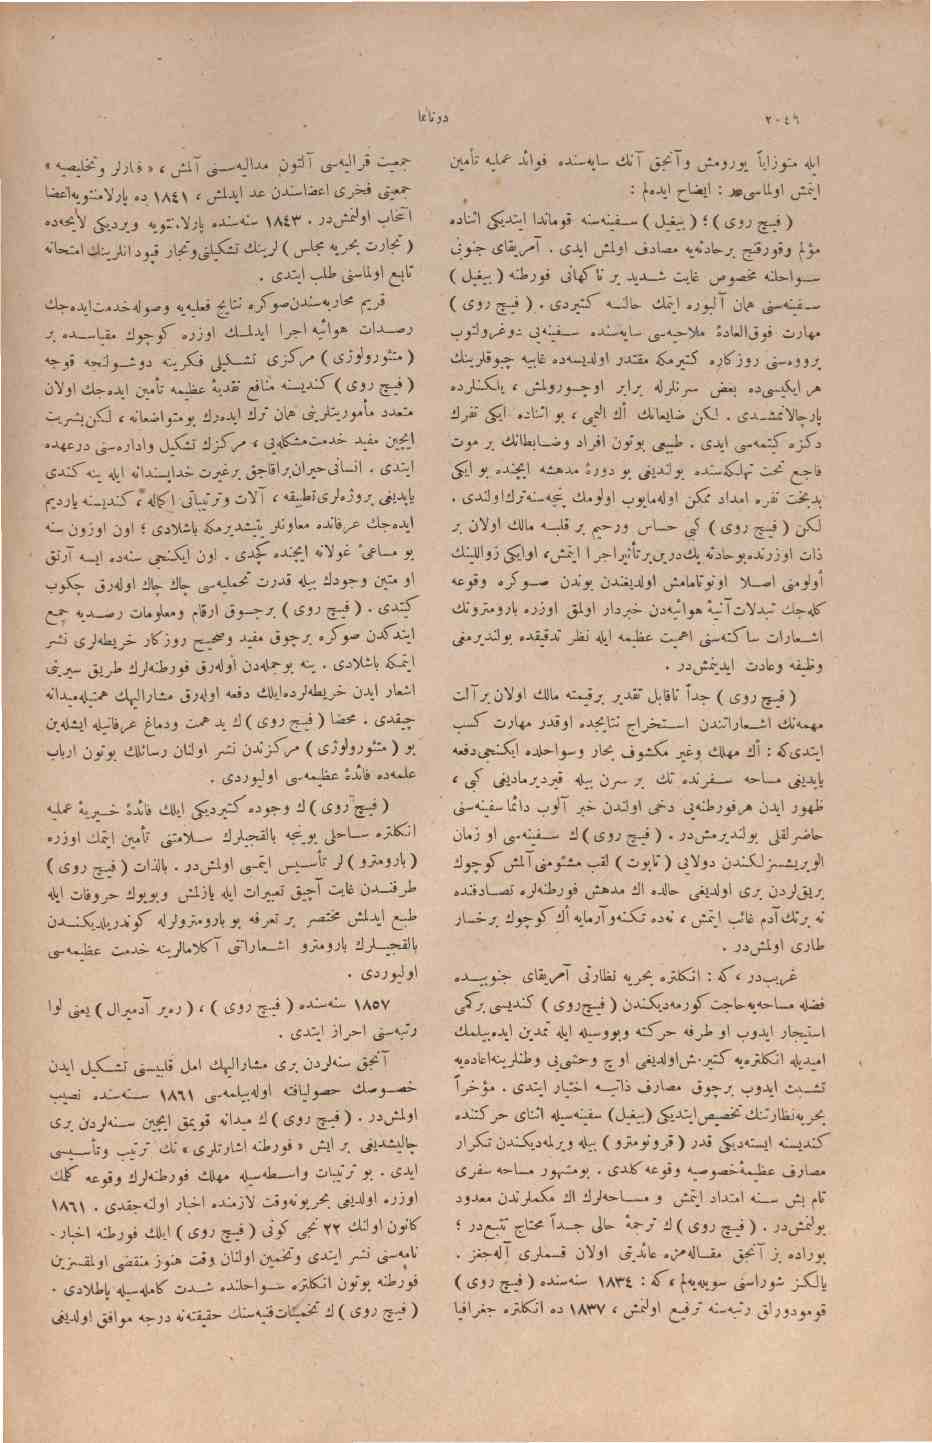 ٢٠٤٦
دوننما
ایله متوازیاً یورومش وآنجق آنك سایه‌سنده فوائد عملیه تأمین
ایتمش اولماسی در : ایضاح ایده‌لم :
( فیچ روی ) ؛ ( بیغیل ) سفینه‌سنه قوماندا ایتدیکی اثناده
مؤلم وقورقنج برحادثه‌یه مصادف اولمش ایدی . آمریقای جنوبی
سواحلنه مخصوص غایت شدید بر ناکهانی فورطنه ( بیغیل )
سفینه‌سنی همان آلبوره ایتمك حالنه کتیردی . ( فیچ روی )
مهارت فوق‌العادهٔ ملاحیه‌سی سایه‌سنده سفینه‌یی دوغرولتوب
برووه‌سنی روزکاره کتیرمکه مقتدر اولدیسه‌ده غابیه چبوقلرینك
هر ایکیسی‌ده بعض سرنلرله برابر اوچورولمش ، یلکنلرده
پارچالانمشدی . لکن ضایعاتك أك الیمی ، بو اثناده ایکی نفرك
دکزه کیتمه‌سی ایدی . طبیعی بوتون افراد وضابطانك بر موت
فاجع تحت تهلکه‌سنده بولندیغی بو دورهٔ مدهشه ایچنده بو ایکی
بدبخت نفره امداد ممکن اوله‌مایوب اولومك پنجه‌سنه‌ترك‌اولندی .
لکن ( فیچ روی ) کبی حساس ورحیم بر قلبه مالك اولان بر
ذات اوزرنده‌بوحادثه پك‌درین‌برتأثیراجرا ایتمش، اوایکی زواللینك
أولومنی اصلا اونوتامامش اولدیغندن بوندن صوکره وقوعه
کله‌جك تبدلات آنیهٔ هوائیه‌دن خبردار اولمق اوزره بارومترونك
اشعارات ساکته‌سنی اهمیت عظیمه ایله نظر تدقیقده بولندیرمغی
وظیفه وعادت ایدینمش‌در .
( فیچ روی ) جداً ناقابل تقدیر برقیمته مالك اولان برآلت
مهمه‌نك اشعاراتندن استخراج نتایجده اوقدر مهارت کسب
ایتدی‌که : أك مهلك وغیر مکشوف بحار وسواحلده ایکنجی‌دفعه
یاپدیغی مساحه سفرنده تك بر سرن بیله قیردیرمادیغی کبی ،
ظهور ایدن هرفورطنه‌یی دخی اولندن خبر آلوب دائما سفینه‌سنی
حاضرلقلی بولندیرمش‌در . ( فیچ روی ) ك سفینه‌سی او زمان
الویریشسزلکندن دولایی ( تابوت ) لقب مشئومنی آلمش کوچوك
بریق‌لردن بری اولدیغی حالده اك مدهش فورطنه‌لره تصادفنده
نه برتك آدم غائب ایتمش ، نه‌ده تکنه‌وآرمایه أك کوچوك برخسار
طاری اولمش‌در .
غریب‌در ، که : انکلتره بحریه نظارتی آمریقای جنوبیده
فضله مساحه‌یه‌حاجت کورمه‌دیکندن ( فیچ‌روی ) کندیسی برکمی
استیجار ایدوب او طرفه حرکتله وبووسیله ایله تمدین ایده‌بیلمك
امیدیله انکلتره‌یه کتیرمش‌اولدیغی اوچ وحشی‌یی وطنلرینه‌اعاده‌یه
تشبث ایدوب برچوق مصارف ذاتیه اختیار ایتدی . مؤخراً
بحریه‌نظارتنك تخصیص‌ایتدیکی (بیغیل) سفینه‌سیله اثنای حرکتنده
کندیسنه ایسته‌دیکی قدر ( قرونومترو ) بیله ویرلمه‌دیکندن تکرار
مصارف عظیمهٔ خصوصیه وقوعه کلدی . بومشهور مساحه سفری
تام بش سنه امتداد ایتمش و مساحه‌لرك اك مکمللرندن معدود
بولنمش‌در . ( فیچ روی ) ك ترجمهٔ حالی جداً محتاج تتبع‌در ؛
بوراده بز آنجق مقاله‌مزه عائدیتی اولان قسملری آله‌جغز .
یالکز شوراسنی سویله‌یه‌لم ، که : ١٨٣٤ سنه‌سنده ( فیچ روی )
قومودورلق رتبه‌سنه ترفیع اولنمش ، ١٨٣٧ ده انکلتره جغرافیا
جمعیت قرالیه‌سی آلتون مدالیه‌سنی آلمش ، « فنارلر وتخلیصیه »
جمعیتی فخری اعضاسندن عد ایدلمش ، ١٨٤١ ده پارلامنتویه‌اعضا
انتخاب اولنمش‌در . ١٨٤٣ سنه‌سنده پارلامنتویه ویردیکی لایحه‌ده
( تجارت بحریه مجلس ) لرینك تشکیلنی‌وتجار قپودانلرینك امتحانه
تابع اولماسنی طلب ایتدی .
قریم محاربه‌سندن‌صوکره نتایج فعلیه‌یه وصوله‌خدمت‌ایده‌جك
رصدات هوائیه اجرا ایدلمك اوزره کوچوك مقیاسده بر
( مته‌ئورولوژی ) مرکزی تشکیلی فکرینه دوشولنجه قوجه
( فیچ روی ) کندیسنه منافع نقدیهٔ عظیمه تأمین ایده‌جك اولان
متعدد مأموریتلرینی همان ترك ایده‌رك بومتواضعانه ، لکن‌بشریت
ایچین مفید خدمت‌مشکله‌یی ، مرکزك تشکیل واداره‌سنی درعهده
ایتدی . انسانی‌حیران‌براقاجق برغیرت خداپسندانه ایله ینه کندی
یاپدیغی پروژه‌لری‌تطبیقه ، آلات وترتیباتی اکماله ، کندیسنه یاردیم
ایده‌جك عرفانده معاونلر یتیشدیرمکه باشلادی ؛ اون اوزون سنه
بو مساعیٔ غولانه ایچنده کچدی . اون ایکنجی سنه‌ده ایسه آرتق
او متین وجودك بیله قدرت تحملیه‌سی چاك چاك اوله‌رق چکوب
کیتدی . ( فیچ روی ) برچوق ارقام ومعلومات رصدیه جمع
ایتدکدن صوکره برچوق مفید وصحیح روزکار خریطه‌لری نشر
ایتمکه باشلادی . ینه بوجمله‌دن اوله‌رق فورطنه‌لرك طریق سیرینی
اشعار ایدن خریطه‌لرده‌ایلك دفعه اوله‌رق مشارالیهك همتیله‌میدانه
چیقدی . محضا ( فیچ روی ) ك ید همت ودماغ عرفانیله ایشله‌ین
بو ( مته‌ئورولوژی ) مرکزندن نشر اولنان رسائلك بوتون ارباب
علمه‌ده فائدهٔ عظیمه‌سی اولیوردی .
( فیچ روی ) ك وجوده کتیردیکی ایلك فائدهٔ خیریهٔ عملیه
انکلتره ساحلی بوینجه بالقجیلرك سلامتنی تأمین ایتمك اوزره
( بارومترو ) لر تأسیس ایتمسی اولمش‌در . بالذات ( فیچ روی )
طرفندن غایت آچیق تعبیرات ایله یازلمش وبویوك حروفات ایله
طبع ایدلمش مختصر بر تعرفه بو بارومترولرله کوندریلدیکندن
بالقجیلرك بارومترو اشعاراتنی آکلامالرینه خدمت عظیمه‌سی
اولیوردی .
١٨٥٧ سنه‌سنده ( فیچ روی ) ، ( ره‌یر آدمیرال ) یعنی لوا
رتبه‌سنی احراز ایتدی .
آنجق سنه‌لردن بری مشارالیهك امل قلبیسنی تشکیل ایدن
خصوصك حصولیافته اوله‌بیلمه‌سی ١٨٦١ سنه‌سنده نصیب
اولمش‌در . ( فیچ روی ) ك میدانه قویمق ایچین سنه‌لردن بری
چالیشدیغی بر ایش « فورطنه اشارتلری » نك ترتیب وتأسیسی
ایدی . بو ترتیبات واسطه‌سیله مهلك فورطنه‌لرك وقوعه کلمك
اوزره اولدیغی بحریونه‌وقت لازمنده اخبار اولنه‌جقدی . ١٨٦١
کانون اولنك ٢٢ نجی کونی ( فیچ روی ) ایلك فورطنه اخبار-
نامه‌سنی نشر ایتدی وتخمین اولنان وقت هنوز منقضی اولمقسزین
فورطنه بوتون انکلتره سواحلنده شدت کامله‌سیله پاطلادی .
( فیچ روی ) ك تخمینات‌فنیه‌سنك حقیقته‌نه درجه موافق اولدیغی